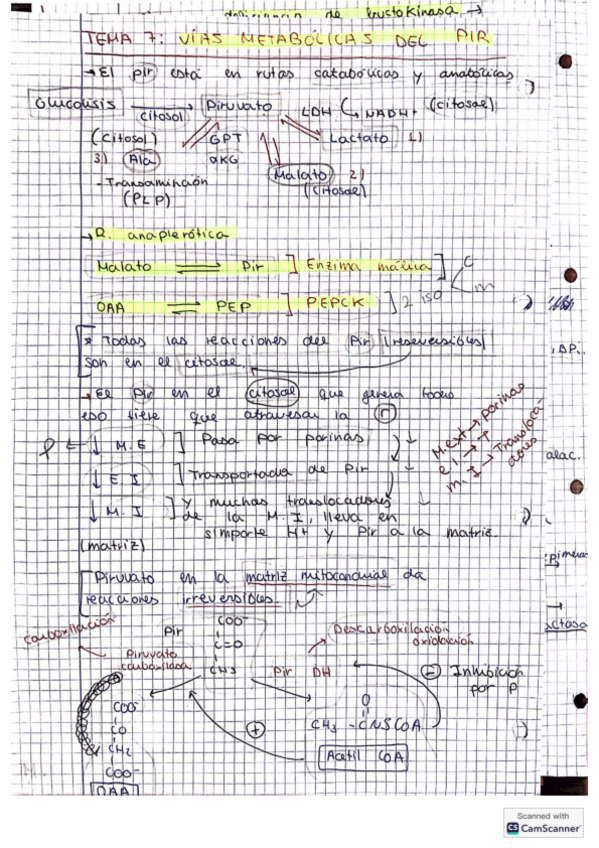 de fructokinasa →
TEMA 7: VÍAS METABÓLICAS DEL PIR
→ El pir está en rutas catabólicas y anabólicas
Glucolisis → Piruvato LDH NADH+ (citosol)
citosol
(citosol) GPT Lactato 1)
3) Ala αKG Malato 2)
- Transaminación (citosol)
(PLP)
→ R. anaplerótica
Malato ⇌ Pir ] Enzima málica ] C
OAA ⇌ PEP ] PEPCK ] 2 iso m
* Todas las reacciones del Pir (reversibles)
son en el citosol.
→ El Pir en el citosol que genera todo
eso tiene que atravesar la
↓ M.E ] Pasa por porinas ↓
↓ E I ] Transportada de Pir ↓
↓ M. I ] y muchas translocadores ↓
de la M. I, lleva en
simporte H+ y Pir a la matriz.
(matriz)
M.ext → porinas
e I → T
m. I → Transloca-
dores
alac.
Piruvato en la matriz mitocondrial da
reacciones irreversibles.
carboxilación
Pir COO⁻
C=O
CH3
Piruvato
carboxilasa
Descarboxilación
oxidación
Pir DH
⊖ Inhibición
por P
COO⁻
CO
CH2
COO⁻
OAA
⊕
O
CH3 - CNSCOA
Acetil CoA
Scanned with
CS CamScanner